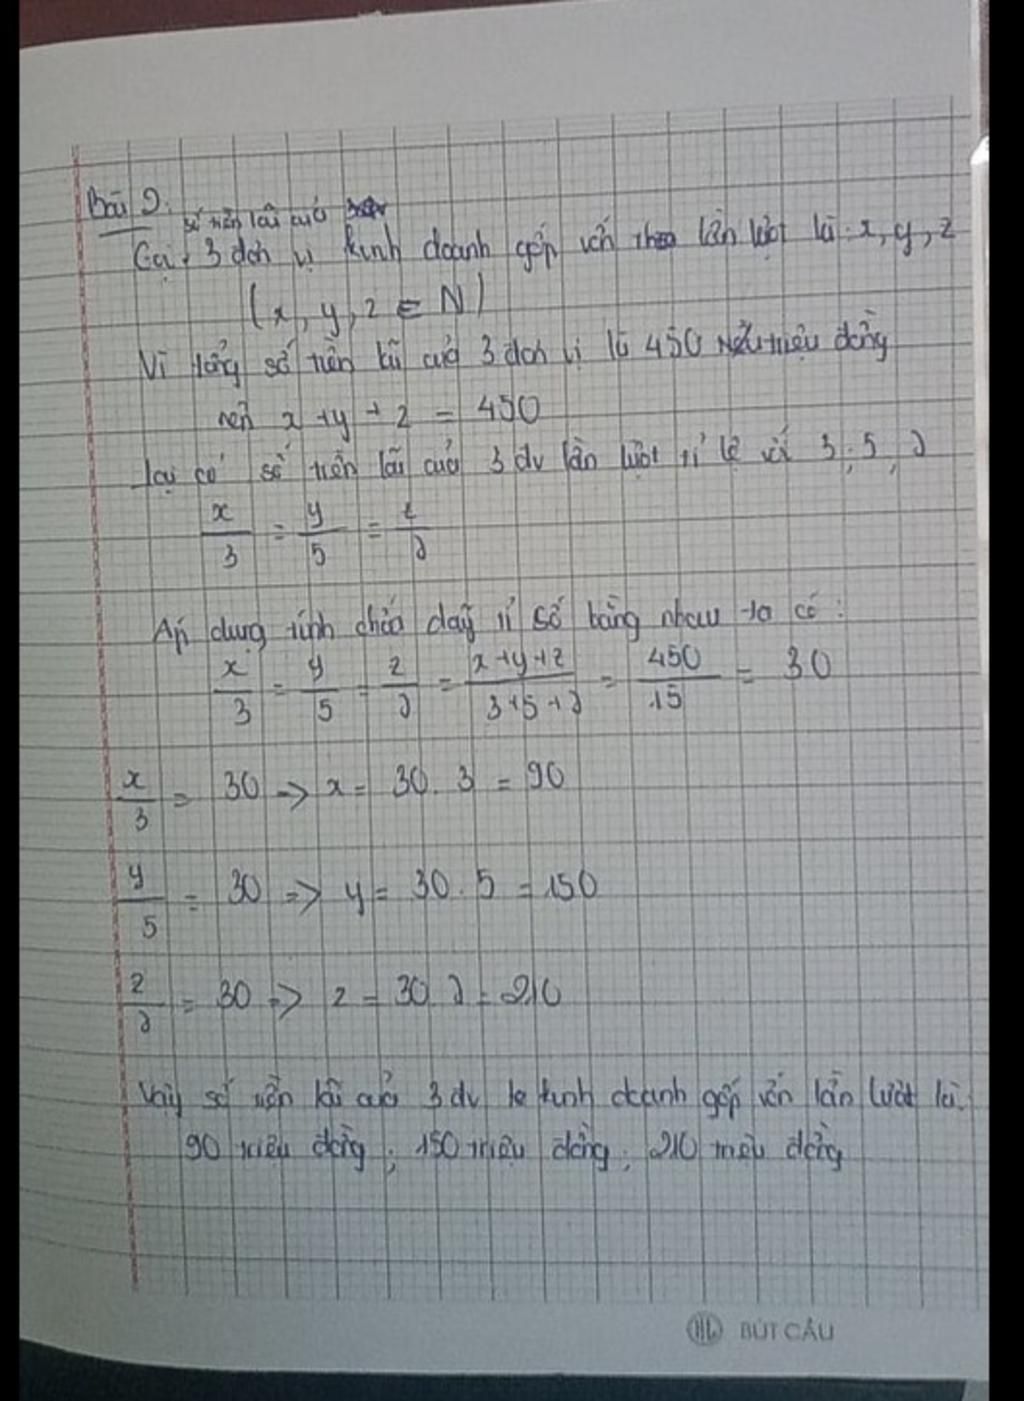 Bài 2:
số tiền lãi của
Gọi 3 đơn vị kinh doanh góp vốn lần lượt là x, y, z
(x, y, z ∈ N)
Vì tổng số tiền lãi của 3 đơn vị là 450 triệu đồng
nên x + y + z = 450
lại có số tiền lãi của 3 dv lần lượt tỉ lệ với 3, 5, 7
x/3 = y/5 = z/7
Áp dụng tính chất dãy tỉ số bằng nhau ta có:
x/3 = y/5 = z/7 = x+y+z/3+5+7 = 450/15 = 30
x/3 = 30 => x = 30.3 = 90
y/5 = 30 => y = 30.5 = 150
z/7 = 30 => z = 30.7 = 210
Vậy số tiền lãi của 3 dv kinh doanh góp vốn lần lượt là
90 triệu đồng; 150 triệu đồng; 210 triệu đồng
BÚT CẦU